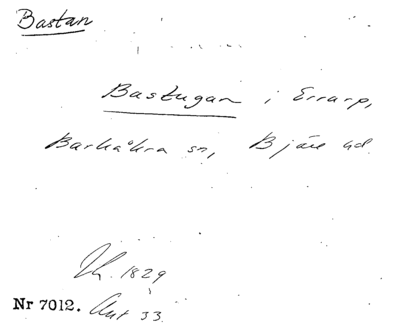 Bastan
Bastugan i Errarp,
Barkåkra sn, Bjäre hd.
Lh. 1829
Nr 7012. Ant 33.